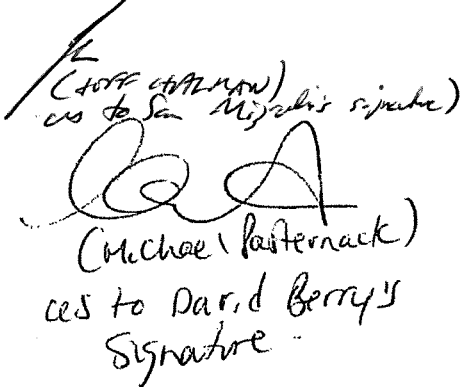 (JEFF CHALMAN)
as to San Mizrahi's signature)
(Michael Pasternack)
as to David Berry's
Signature.